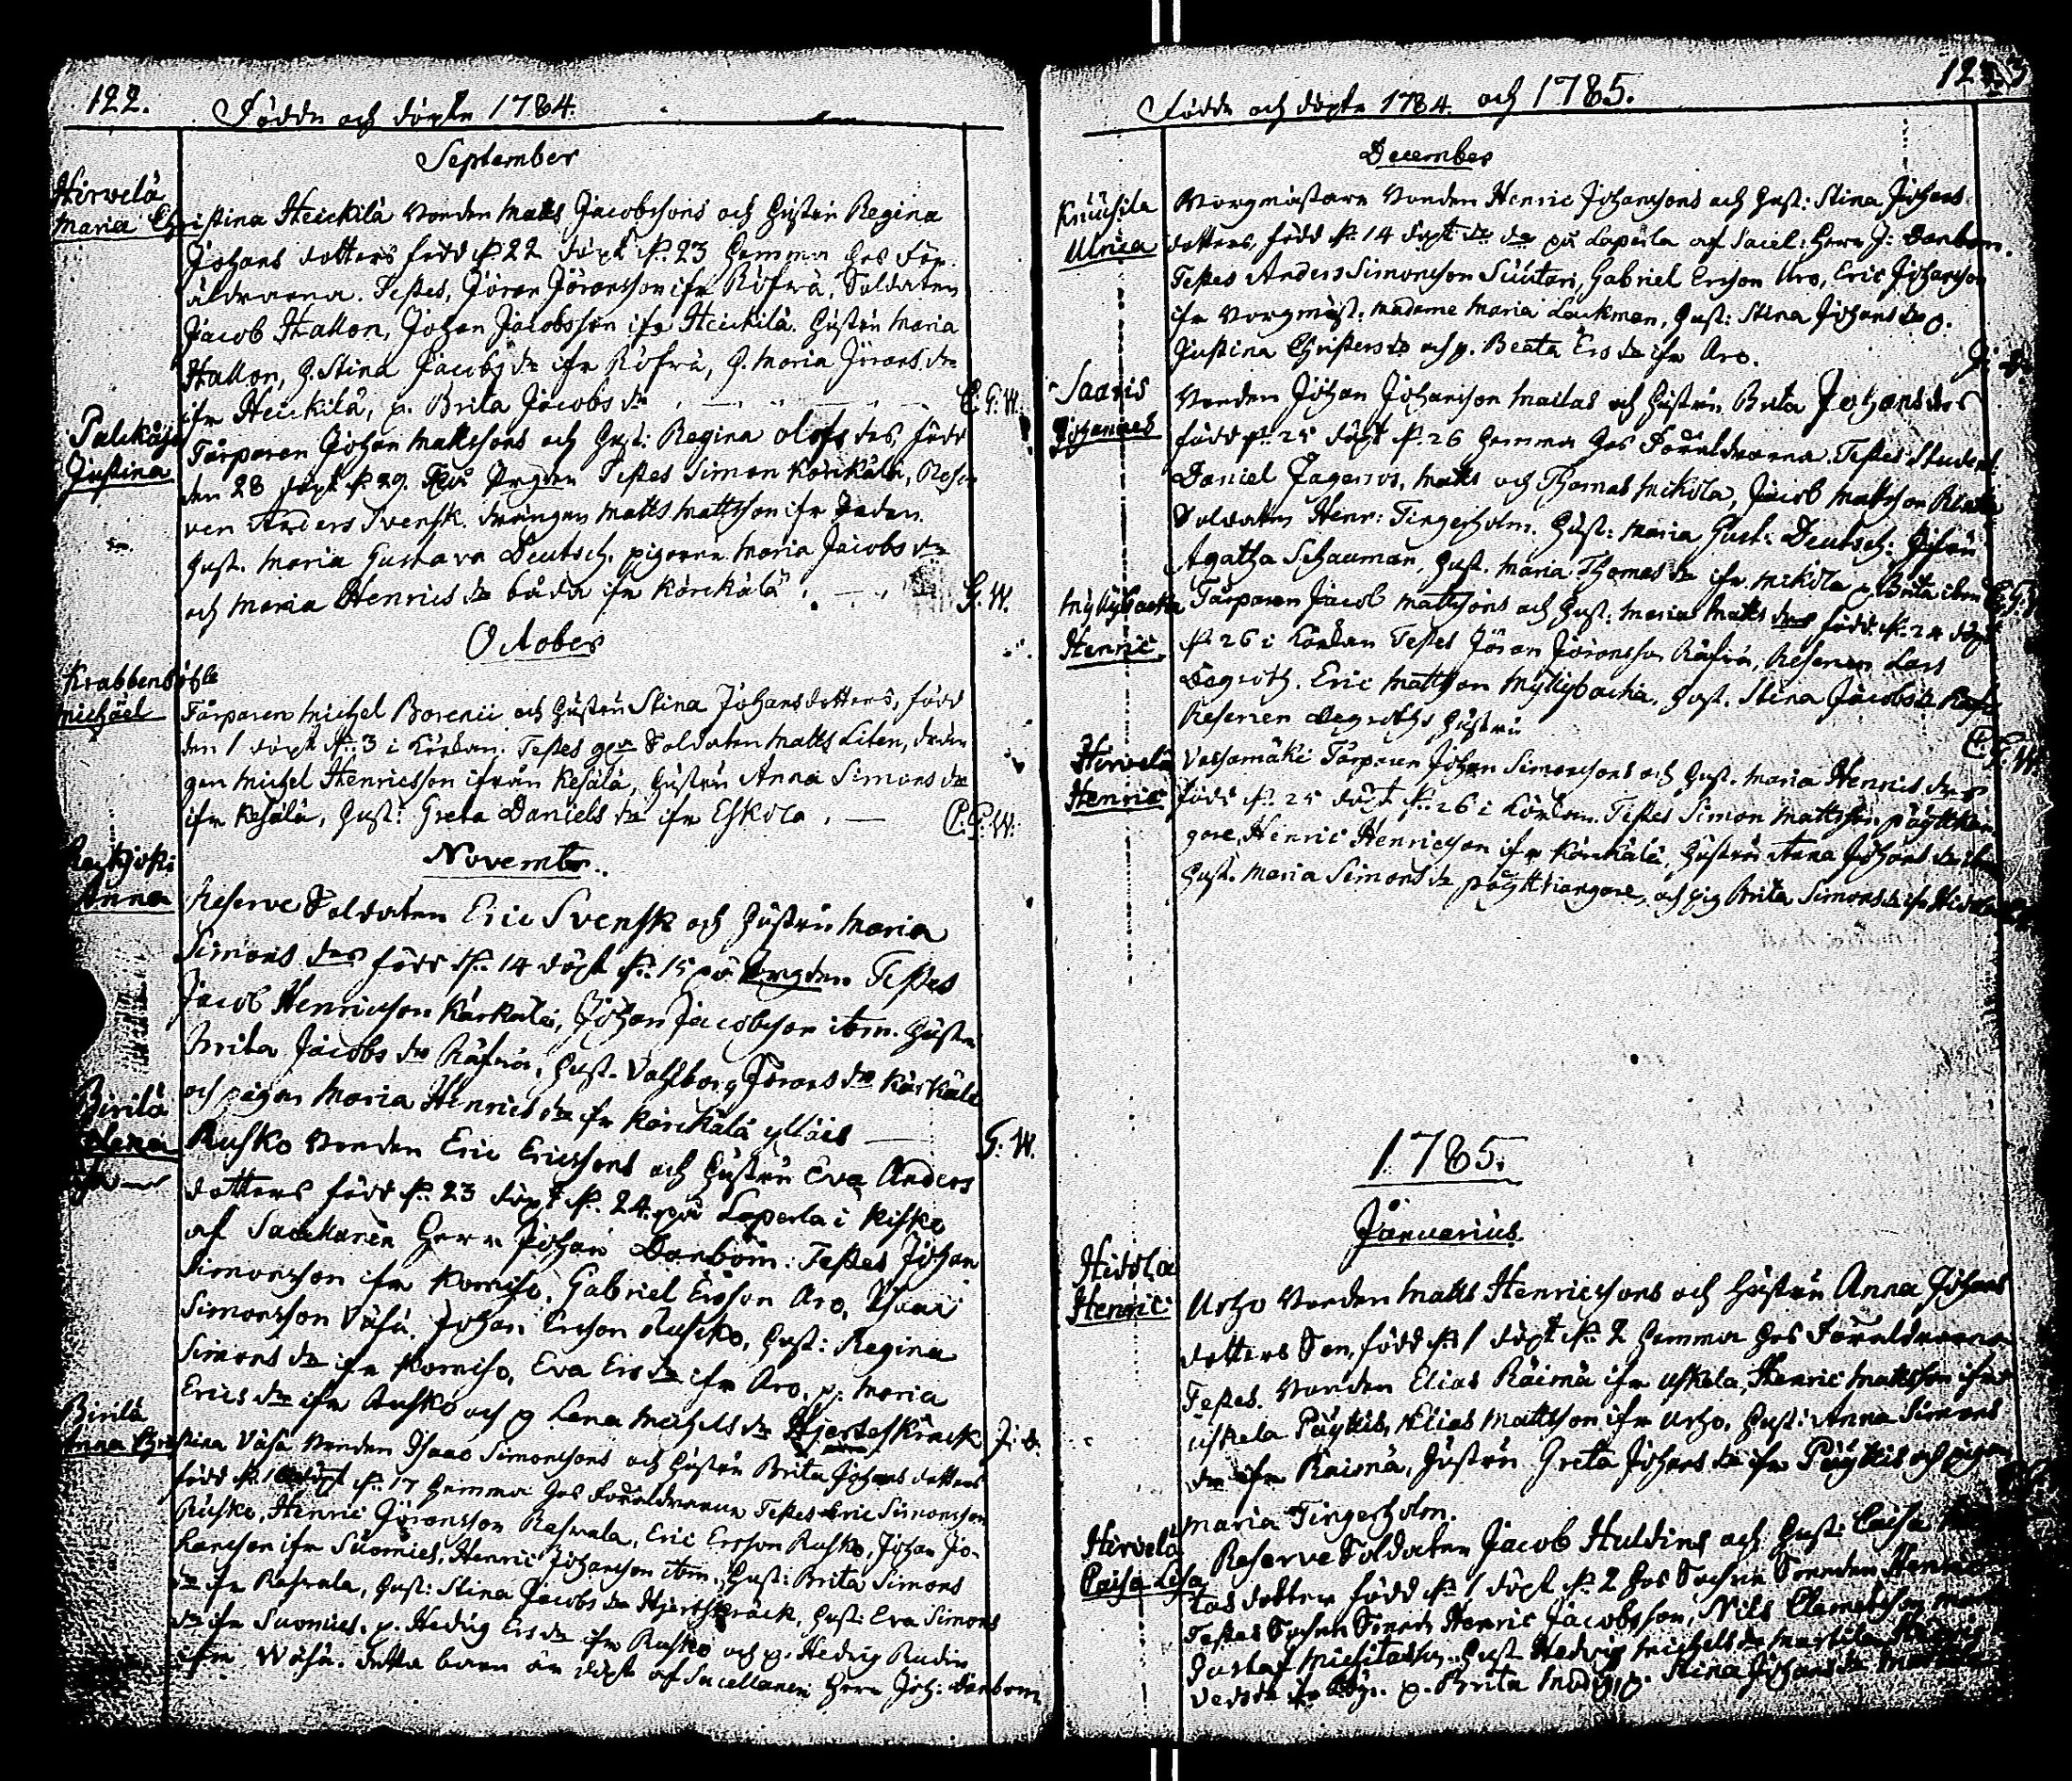 122.
Födde och döpte 1784.
September
Hirvelä
Maria Christina Heickilä bonden Matts Jacobssons och hustru Regina
Johans dotters född d: 22 döpt d: 23 hemma hos för
äldrarna. Testes, Jöran Jöransson ifr Röfvä, Soldaten
Jacob Hallon, Johan Jacobsson ifr Heickilä. hustru Maria
Hallon, h. Stina Jacobs dr ifr Röfvä, h. Maria Jörans dr
ifr Heickilä, p. Brita Jacobs dr C.G.W.
Palckäja
Justina
Torparen Johan Mattssons och hust: Regina Olofs drs, född
den 28 döpt d: 29. på Prgden Testes Simon Körckälä, Reser
ven Anders Svensk. drängen Matts Mattsson ifr
hust. Maria Gustava Deutsch. pigorna Maria Jacobs dr
och Maria Henrics dr båda ifr Körckälä. G.W.
October
Krabbens
Michael
Torparen Michel Borenii och hustru Stina Johansdotters, född
den 1 döpt d: 3 i Kyrkan. Testes Soldaten Matts Liten, drän
gen Michel Henricsson ifrån Kesälä, hustru Anna Simons dr
ifr Kesälä, hust: Greta Daniels dr ifr Eskola. C.G.W.
Novembr.
Anna
Reserve Soldaten Eric Svensk och hustru Maria
Simons drs född d: 14 döpt d: 15 på Prgden Testes
Jacob Henricsson Kärkälä, Johan Jacobsson ibm. hustru
Brita Jacobs dr Räfvä, hust. Valborg Jörans dr Kärkälä
och pigan Maria Henrics dr ifr Körckälä ylläis G.W.
Birilä
Lena
Rusko bonden Eric Ericssons och hustru Eva Anders
dotters född d: 23 döpt d: 24 på Laperla i Kisko
af Sacellanen Herr Johan Danbom. Testes Johan
Simonsson ifr Komiso, Gabriel Ersson Aro, Isaac
Simonsson Väsä, Johan Ersson Rusko, hust: Regina
Simons dr ifr Komiso, Eva Ers dr ifr Aro, p: Maria
Erics dr ifr Rusko och p Lena Michels dr Hjerteskräck J: D.
Birilä
Anna Christina Väsä bonden Isaac Simonssons och hustru Brita Johans dotters
född d: döpt d: 17 hemma hos Föräldrarna Testes Eric Simonsson
Rusko, Henric Jöransson Rahvala, Eric Ersson Rusko, Johan Jo-
hansson ifr Suomies, Henric Johansson ibm. hust: Brita Simons
dr ifr Rahvala, hust: Stina Jacobs dr Hjerteskräck, hust: Eva Simons
dr ifr Suomies, p. Hedvig Ers dr ifr Rusko och p. Hedvig Rudin
ifrn Wäsä. detta barn är döpt af Sacellanen Herr Joh: Danbom
123
Födde och döpte 1784. och 1785.
December
Knuusila
Ulrica
Borgmästare bonden Henric Johanssons och hust: Stina Johans
dotters, född d: 14 döpt dr på Laperla af Sacel: Herr J: Danbom.
Testes Anders Simonsson Suutari, Gabriel Ersson Aro, Eric Johansson
ifr Borgmäst. Madame Maria Lackman, hust: Stina Johans dr
Justina Christers dr och p. Beata Ers dr ifr Aro. J: D.
Saaris
Johannes
Bonden Johan Johansson Mailas och hustru Brita Johans drs
född d: 25 döpt d: 26 hemma hos Föräldrarna. Testes Student
Daniel Fagerros, Matts och Thomas Mikola, Jacob Mattsson
Soldaten Henr: Tingerholm. hust: Maria Gust: Deutsch:
Agatha Schauman, hust. Maria Thomas dr ifr Mikola p Brita ibm C.G.W
Myllybacka
Henric
Torparen Jacob Mattssons och hust. Maria Matts drs född d: 24 döpt
d: 26 i Kyrkan Testes Jöran Jöransson Räfvä, Reserven Lars
Degroth. Eric Mattsson Myllybacka, hust. Stina Jacobs dr
Reserven Degroths hustru C.G.W
Hirvelä
Henric
Vassamäki Torparen Johan Simonssons och hust. Maria Henrics drs
född d: 25 döpt d: 26 i Kyrkan. Testes Simon Mattsson
gare, Henric Henricsson ifr Körckälä, hustru Anna Johans dr
hust. Maria Simons dr och pig Brita Simons dr ifr Hidola
1785.
Januarius
Hidola
Henric
Urho bonden Matts Henricssons och hustru Anna Johans
dotters Son, född d: 1 döpt d: 2 hemma hos Föräldrarna
Testes. bonden Elias Räimä ifr Uskela, Henric Mattsson ifr
Uskela Päykis, Elias Mattsson ifr Urho. hust: Anna Simons
dr ifr Raimä, hustru Greta Johans dr ifr Päykis och pigan
Maria Tingerholm.
Hirvelä
Caisa Lisa
Reserve Soldaten Jacob Huldins och hust: Caisa
tas dotter född d: 1 döpt d: 2 hos
Testes Henric Jacobsson, Nils Clemetsson
Gustaf Michelsson. hust Hedvig Michels dr
p. Brita p. Stina Johans dr